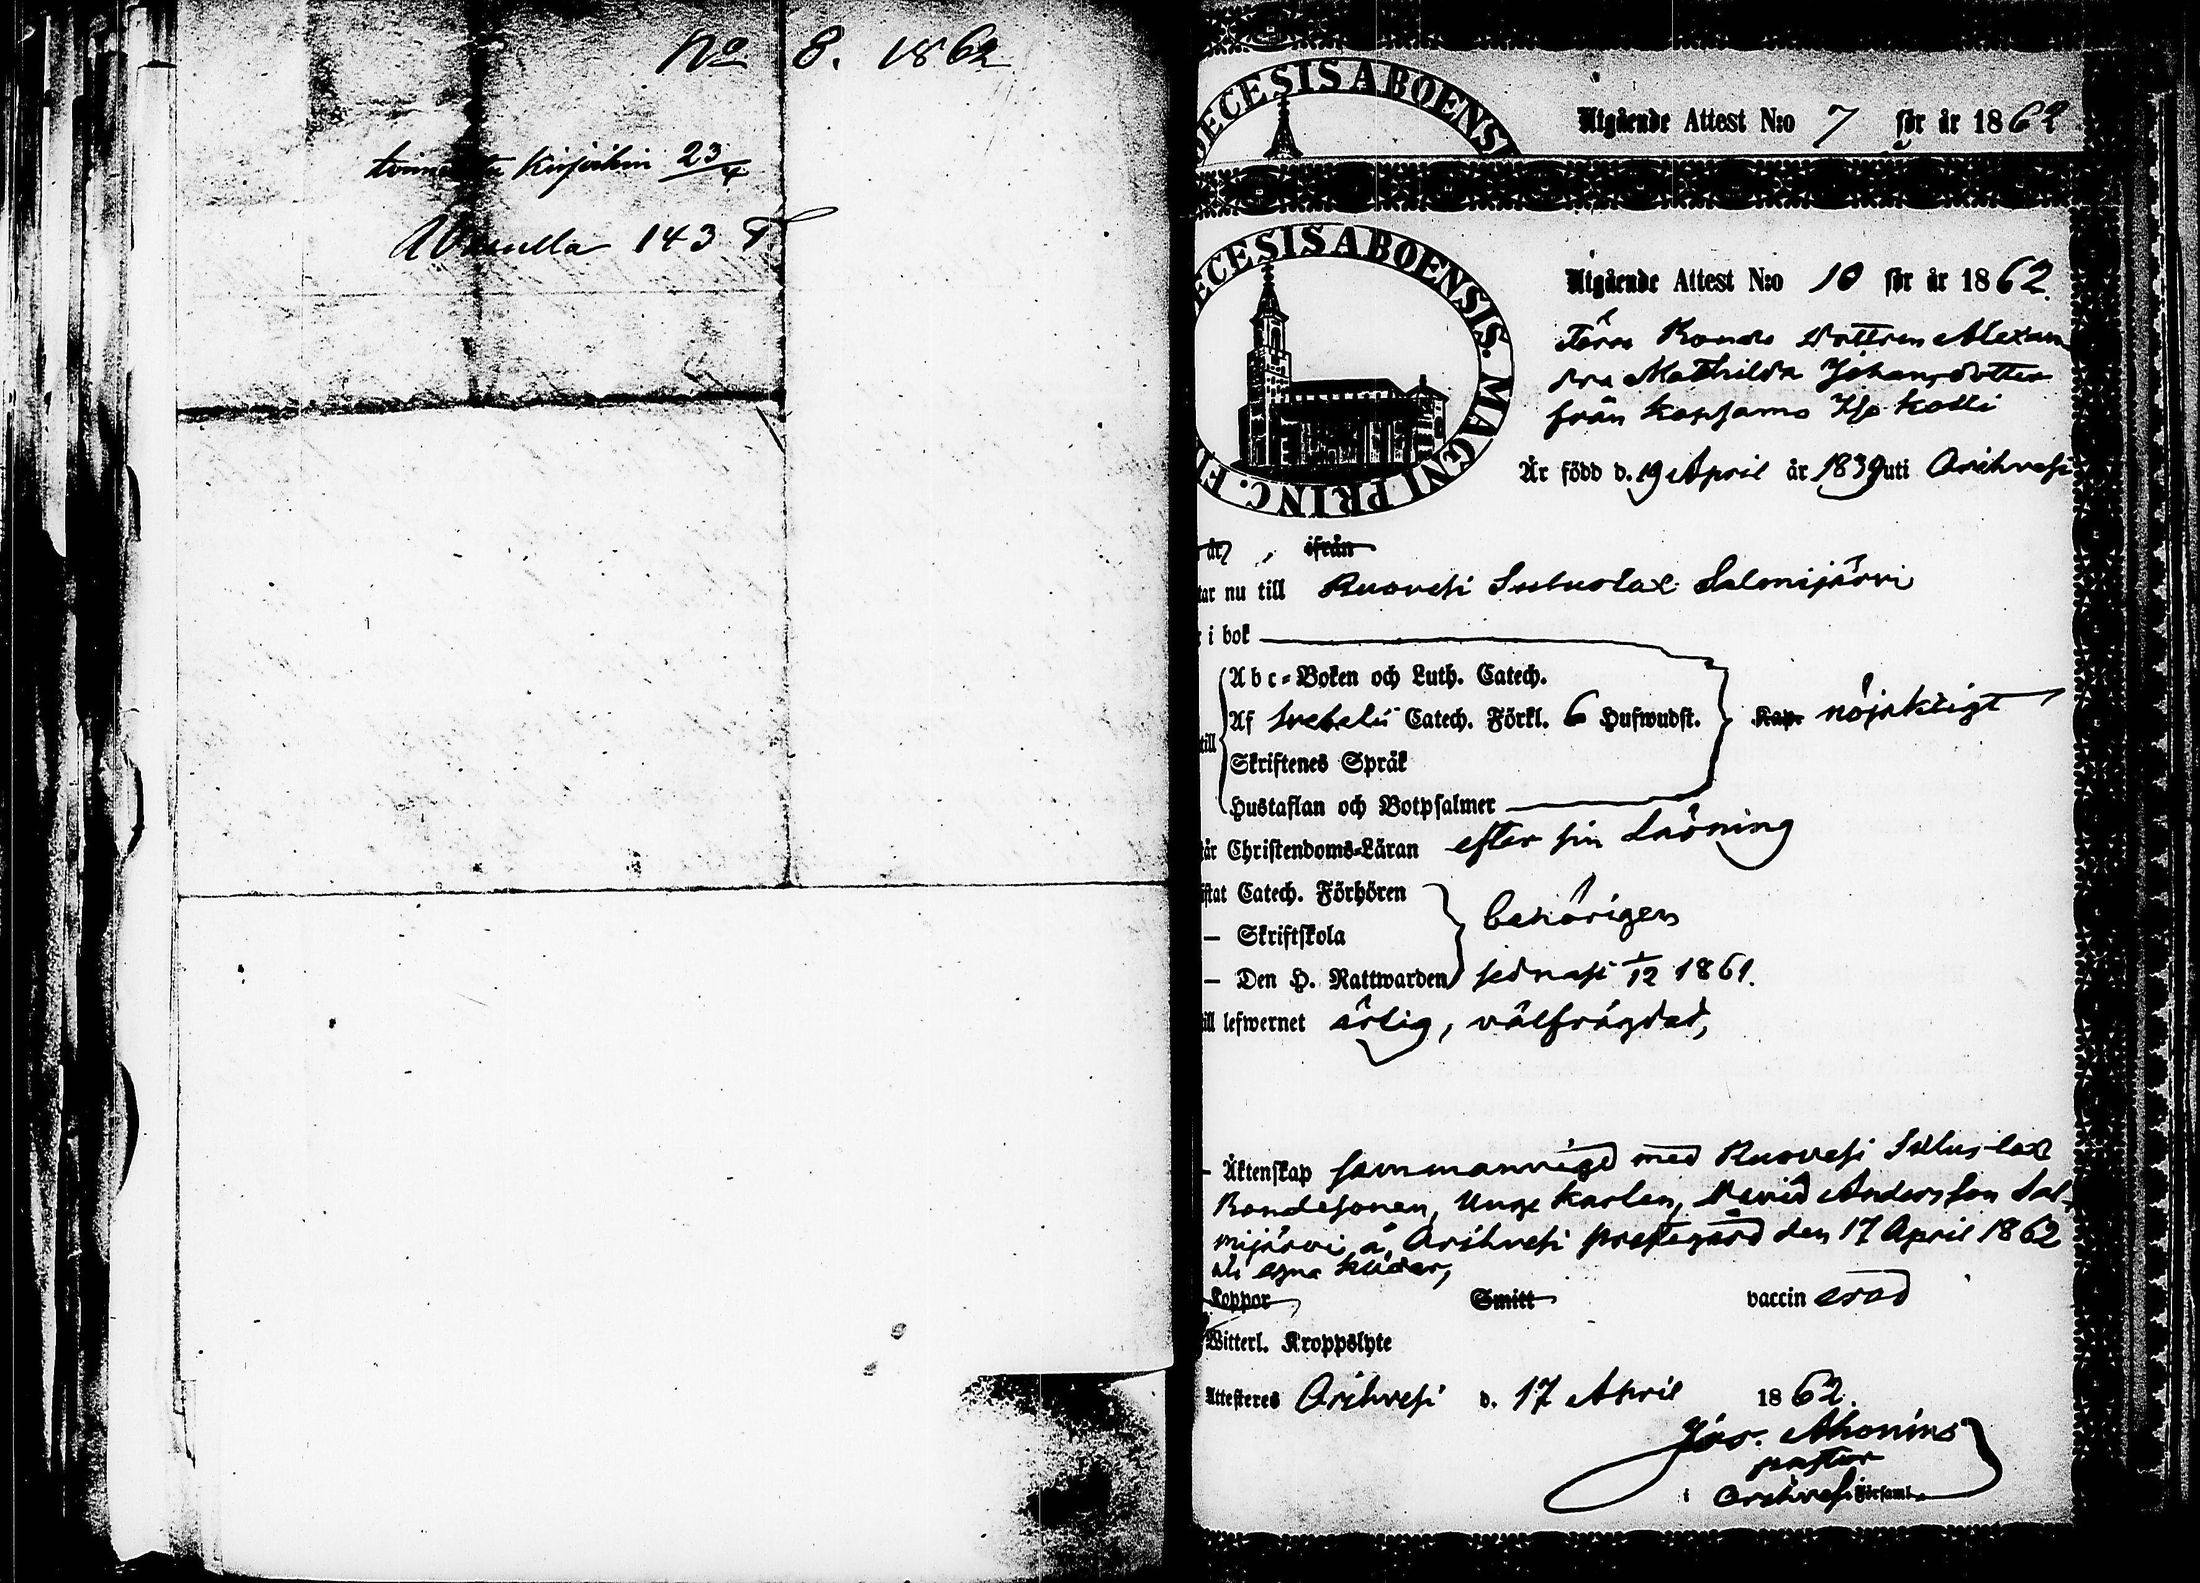 No 8. 1862
kirjoihin 23/4
143
DECESIS ABOENSI
Utgående Attest N:o 7 för år 1862
ECESIS ABOENSIS. MAGNI PRINC. FI
Utgående Attest N:o 10 för år 1862.
Förre Bonde dottren Alexan
dra Mathilda Johansdotter
från Kapsamo Iso Kolli
Är född d. 19 April år 1839 uti Orihvesi
år ifrån
tar nu till Ruovesi Salmijärvi
i bok
Abc-Boken och Luth. Catech.
Af Svebelii Catech. Förkl. 6 Hufwudst. Kap. nöjaktigt
till
Skriftenes Språk
Hustaflan och Botpsalmer
tår Christendoms-Läran efter sin Läsning
istat Catech. Förhören
— Skriftskola behörigen
— Den H. Nattwarden sednast 1/12 1861.
ill lefwernet ärlig, välfrägdad,
— Äktenskap sammanvigd med Ruovesi
Bondesonen, Unge Karlen, David Andersson Sal-
mijärvi, å Orihvesi prestegård den 17 April 1862
Koppor Smitt vaccin erad
Witterl. Kroppslyte
Attesteres Orihvesi d. 17 April 1862.
Jos. Ahonius
pastor
i Orihvesi Församl.